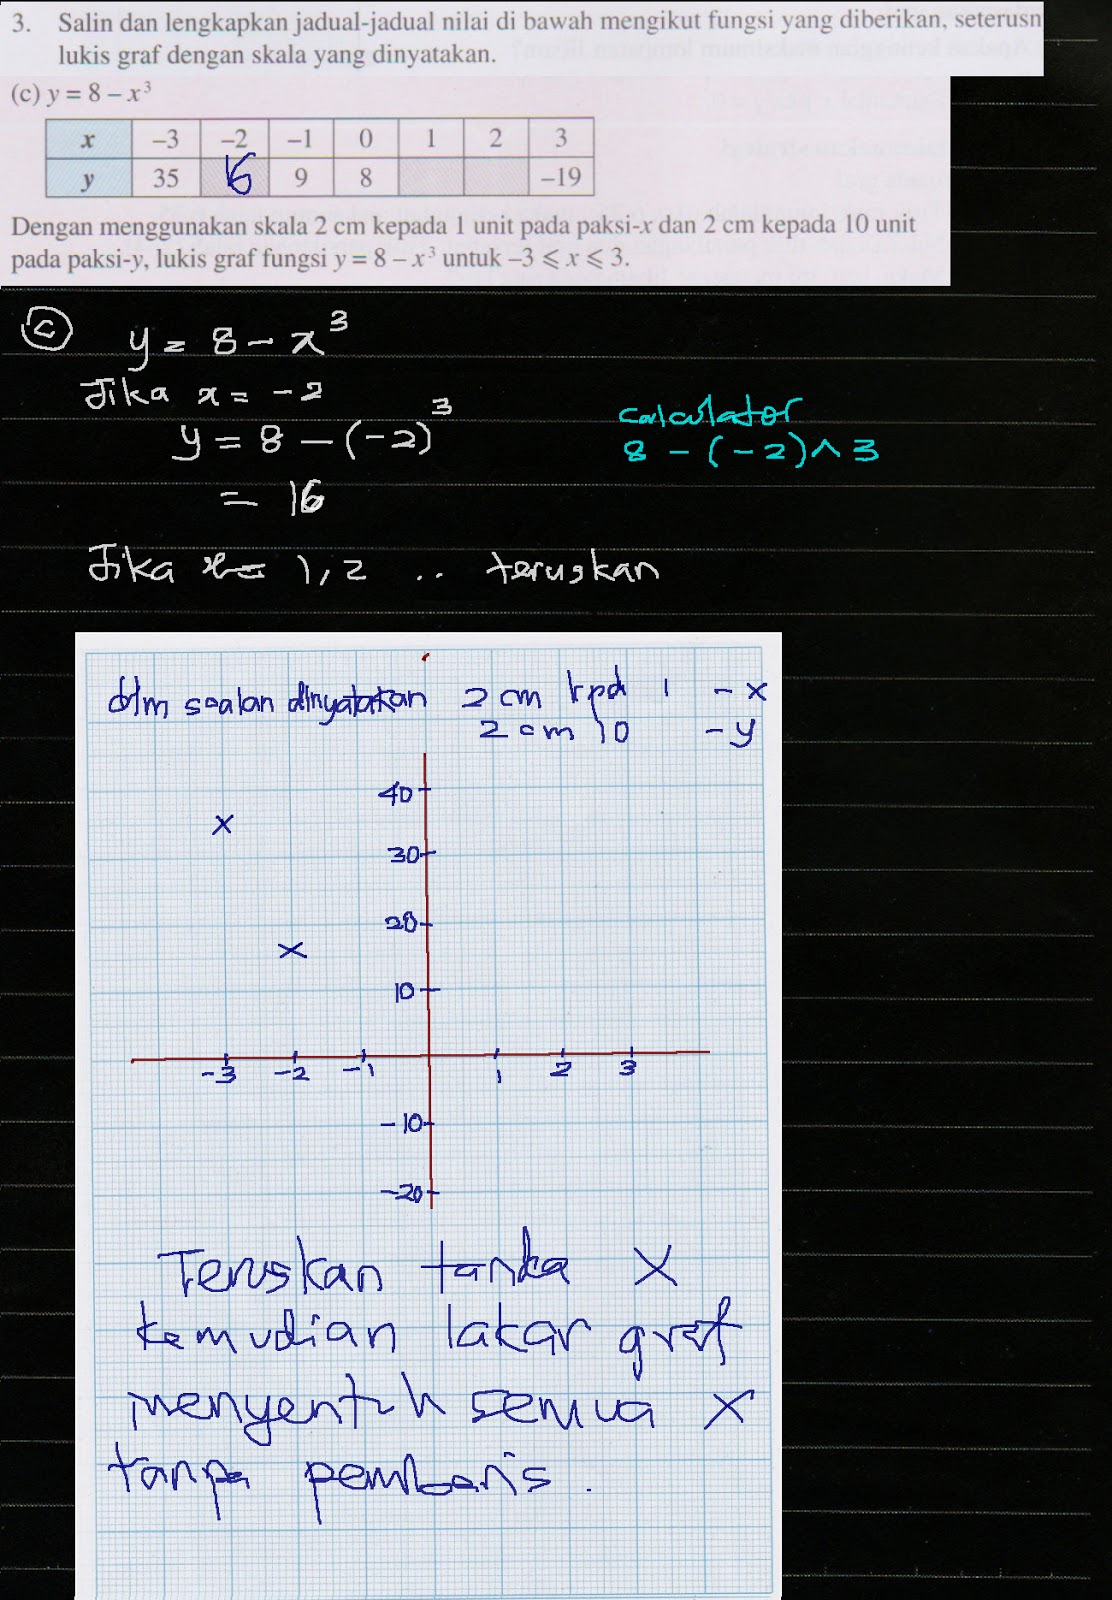 3. Salin dan lengkapkan jadual-jadual nilai di bawah mengikut fungsi yang diberikan, seterusn
lukis graf dengan skala yang dinyatakan.
(c) y = 8 – x³
x –3 –2 –1 0 1 2 3
y 35 16 9 8 –19
Dengan menggunakan skala 2 cm kepada 1 unit pada paksi-x dan 2 cm kepada 10 unit
pada paksi-y, lukis graf fungsi y = 8 – x³ untuk –3 ⩽ x ⩽ 3.
(c) y = 8 – x³
Jika x = -2
y = 8 – (-2)³
calculator
8 – (-2)^3
= 16
Jika x = 1, 2 .. teruskan
dlm soalan dinyatakan 2 cm kpd 1 - x
2 cm 10 - y
40
30
20
10
-3 -2 -1 1 2 3
-10
-20
Teruskan tanda X
kemudian lakar graf
menyentuh semua X
tanpa pembaris.